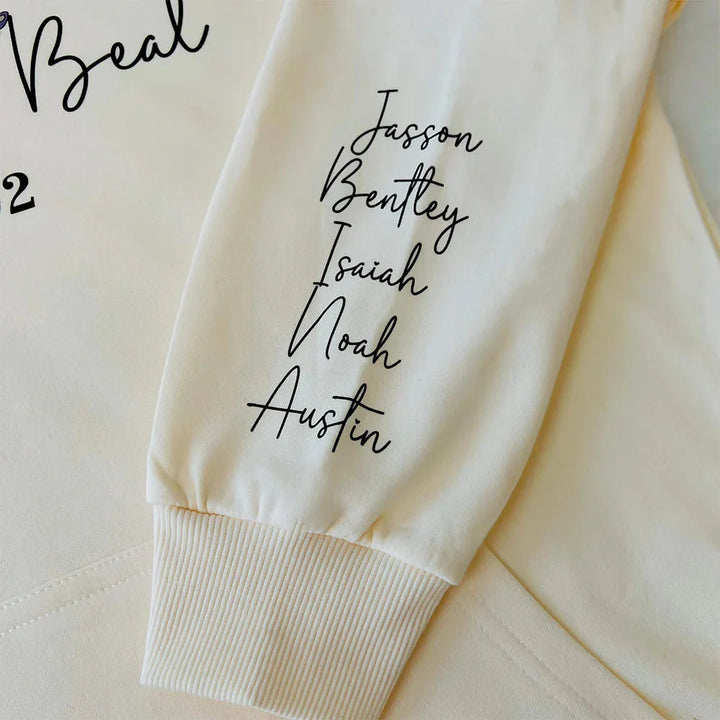 Beal
2
Jasson
Bentley
Isaiah
Noah
Austin